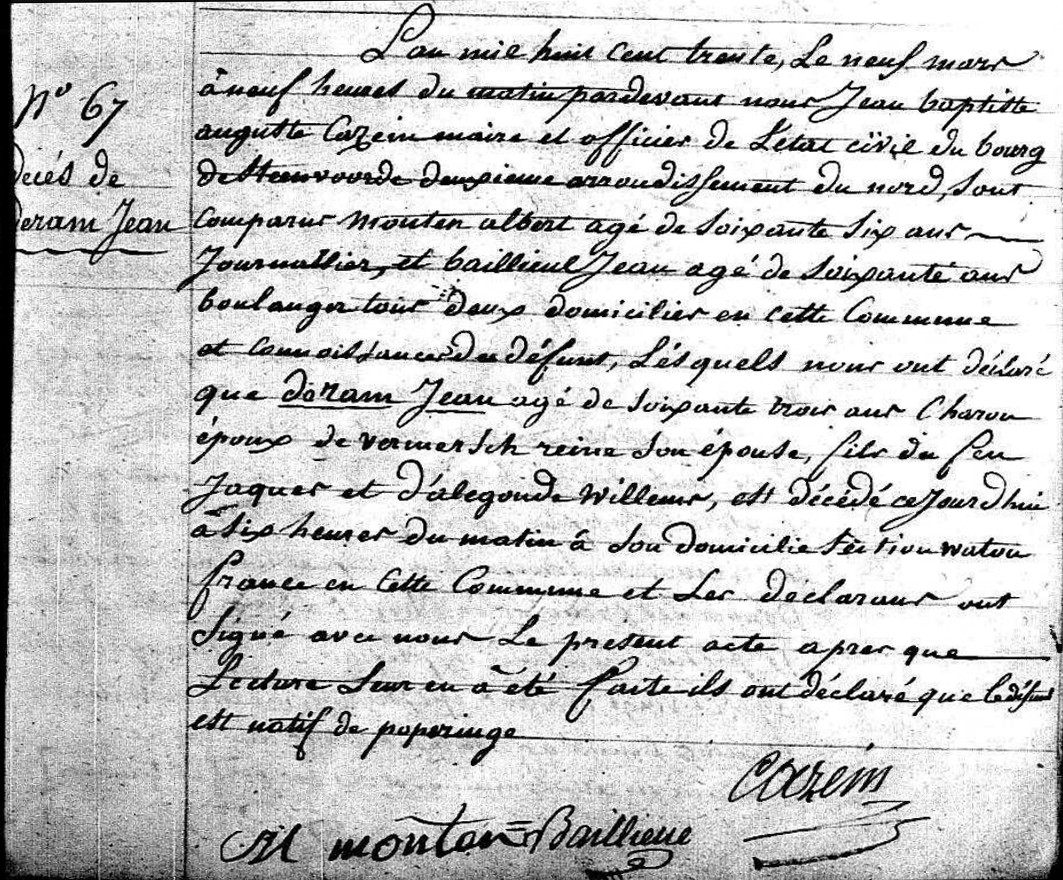 N° 67
decés de
deram Jean
L'an mil huit cent trente, Le neuf mars
à neuf heures du matin pardevant nous Jean baptiste
auguste Cazein maire et officier de L'etat cïvil du bourg
de Steenvoorde deuxieme arrondissement du nord, sont
comparus monten albert agé de soixante six ans
Journallier, et baillieul Jean agé de soixante ans
boulanger tous deux domiciliés en cette Commune
et connoissances du défunt, Lésquels nous ont déclaré
que deram Jean agé de soixante trois ans Charon
époux de vermersch reine son épouse, fils du feu
Jaques et d'alegonde Willems, est décédé cejourd'hui
à six heures du matin à son domicilie section watou
france en cette Commune et Les déclarans ont
signé avec nous Le present acte apres que
Lecture Leur en à été faite ils ont déclaré que le défunt
est natif de popringe
Cazein
monten Baillieue